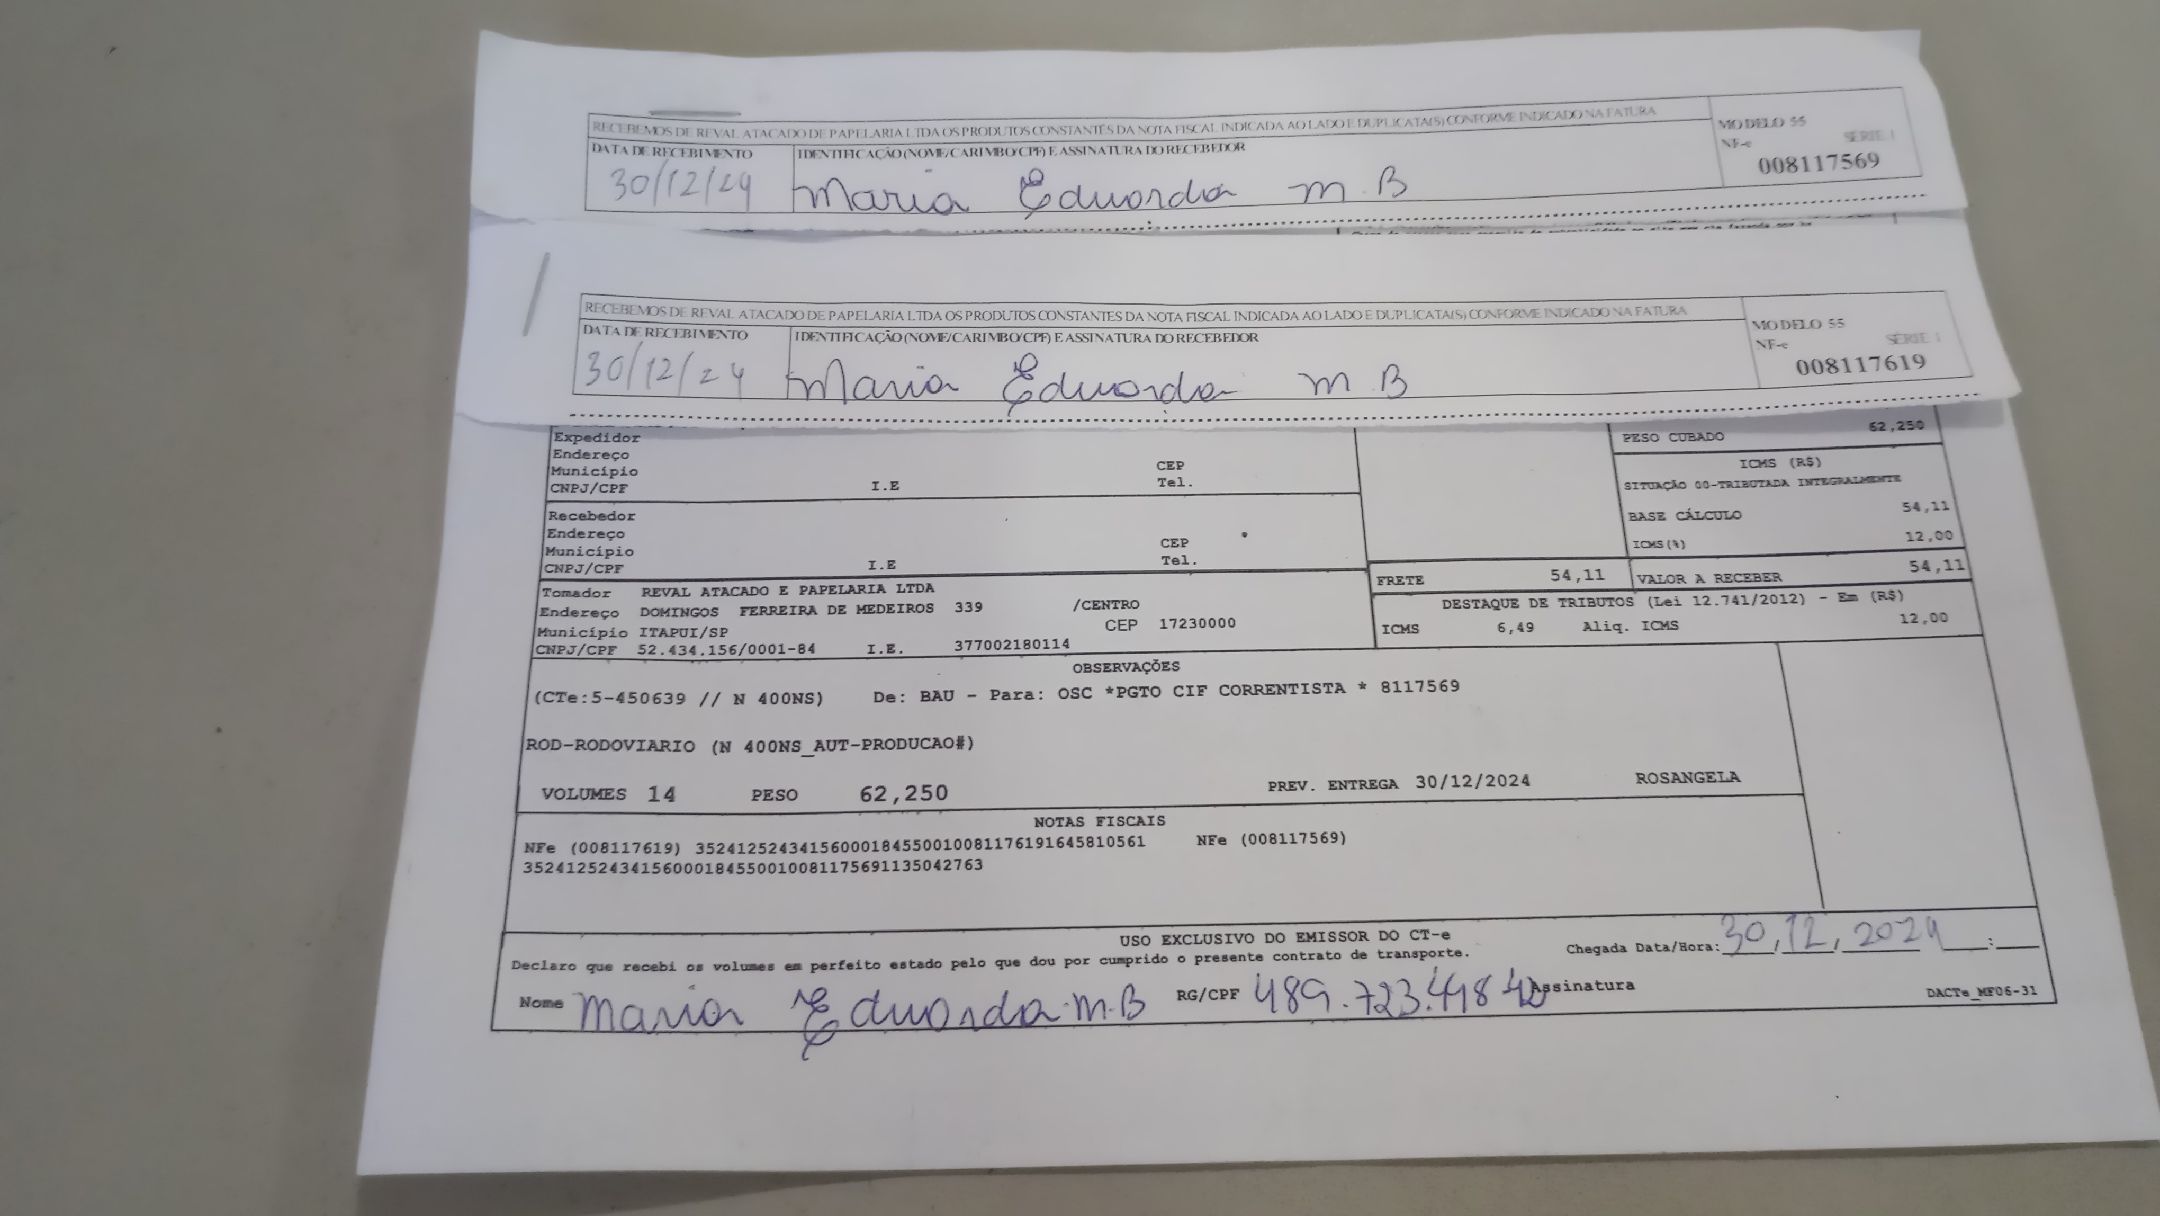 RECEBEMOS DE REVAL ATACADO DE PAPELARIA LTDA OS PRODUTOS CONSTANTES DA NOTA FISCAL INDICADA AO LADO E DUPLICATA(S) CONFORME INDICADO NA FATURA
MODELO 55
NF-e SÉRIE 1
008117569
DATA DE RECEBIMENTO IDENTIFICAÇÃO (NOME/CARIMBO/CPF) E ASSINATURA DO RECEBEDOR
30/12/24 Maria Eduarda M.B
RECEBEMOS DE REVAL ATACADO DE PAPELARIA LTDA OS PRODUTOS CONSTANTES DA NOTA FISCAL INDICADA AO LADO E DUPLICATA(S) CONFORME INDICADO NA FATURA
MODELO 55
NF-e SÉRIE 1
008117619
DATA DE RECEBIMENTO IDENTIFICAÇÃO (NOME/CARIMBO/CPF) E ASSINATURA DO RECEBEDOR
30/12/24 Maria Eduarda M B
Expedidor
Endereço
Município CEP
CNPJ/CPF I.E Tel.
Recebedor
Endereço
Município CEP
CNPJ/CPF I.E Tel.
PESO CUBADO 62,250
ICMS (R$)
SITUAÇÃO 00-TRIBUTADA INTEGRALMENTE
BASE CÁLCULO 54,11
ICMS(%) 12,00
FRETE 54,11 VALOR A RECEBER 54,11
Tomador REVAL ATACADO E PAPELARIA LTDA
Endereço DOMINGOS FERREIRA DE MEDEIROS 339 /CENTRO
Município ITAPUI/SP CEP 17230000
CNPJ/CPF 52.434.156/0001-84 I.E. 377002180114
DESTAQUE DE TRIBUTOS (Lei 12.741/2012) - Em (R$)
ICMS 6,49 Aliq. ICMS 12,00
OBSERVAÇÕES
(CTe:5-450639 // N 400NS) De: BAU - Para: OSC *PGTO CIF CORRENTISTA * 8117569
ROD-RODOVIARIO (N 400NS_AUT-PRODUCAO#)
VOLUMES 14 PESO 62,250 PREV. ENTREGA 30/12/2024 ROSANGELA
NOTAS FISCAIS
NFe (008117619) 35241252434156000184550010081176191645810561 NFe (008117569)
35241252434156000184550010081175691135042763
USO EXCLUSIVO DO EMISSOR DO CT-e
Declaro que recebi os volumes em perfeito estado pelo que dou por cumprido o presente contrato de transporte.
Chegada Data/Hora: 30, 12, 2024 ___:___
Nome Maria Eduarda M.B RG/CPF 489.723.498 40 Assinatura
DACTe_MF06-31